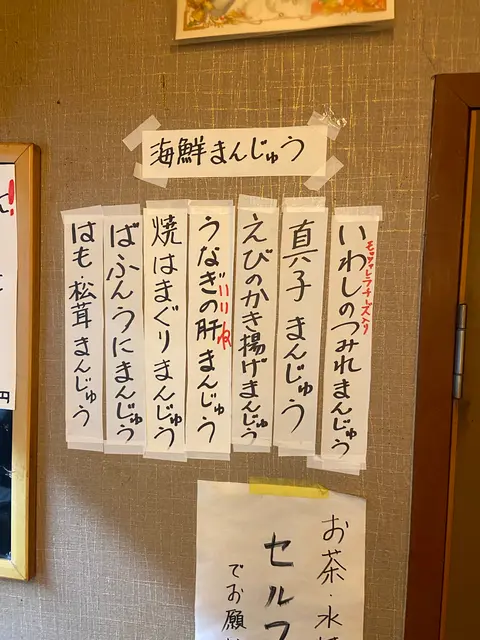 海鮮まんじゅう
いわしのつみれまんじゅう
モッツァレラチーズ入り
真子まんじゅう
えびのかき揚げまんじゅう
うなぎの肝まんじゅう
焼はまぐりまんじゅう
ばふんうにまんじゅう
はも・松茸まんじゅう
お茶・水
セルフ
でお願い
円